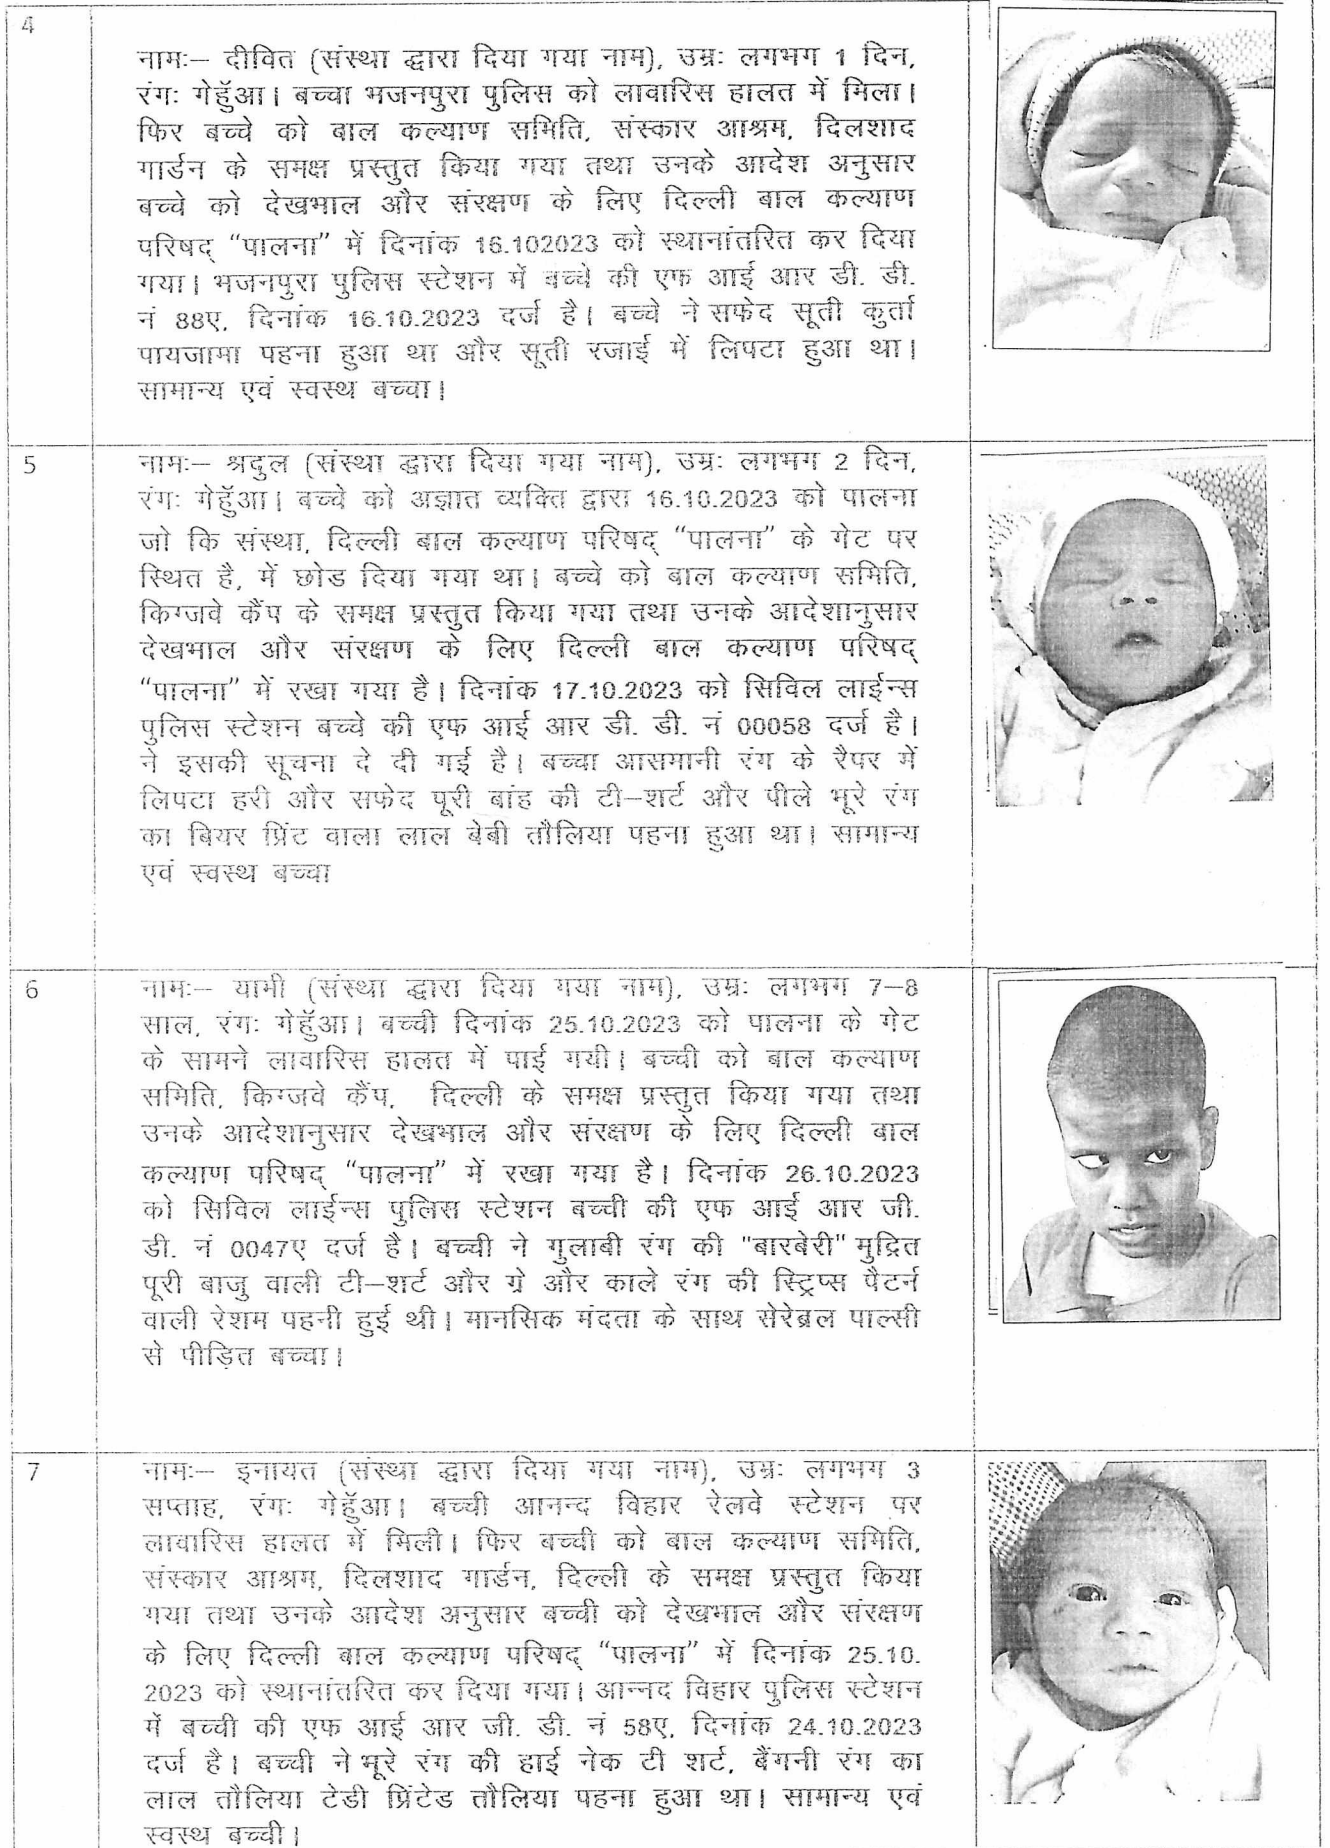 4
नामः– दीवित (संस्था द्वारा दिया गया नाम), उम्रः लगभग 1 दिन,
रंगः गेहुँआ। बच्चा भजनपुरा पुलिस को लावारिस हालत में मिला।
फिर बच्चे को बाल कल्याण समिति, संस्कार आश्रम, दिलशाद
गार्डन के समक्ष प्रस्तुत किया गया तथा उनके आदेश अनुसार
बच्चे को देखभाल और संरक्षण के लिए दिल्ली बाल कल्याण
परिषद् “पालना” में दिनांक 16.102023 को स्थानांतरित कर दिया
गया। भजनपुरा पुलिस स्टेशन में बच्चे की एफ आई आर डी. डी.
नं 88ए, दिनांक 16.10.2023 दर्ज है। बच्चे ने सफेद सूती कुर्ता
पायजामा पहना हुआ था और सूती रजाई में लिपटा हुआ था।
सामान्य एवं स्वस्थ बच्चा।
5
नामः– श्रदुल (संस्था द्वारा दिया गया नाम), उम्रः लगभग 2 दिन,
रंगः गेहुँआ। बच्चे को अज्ञात व्यक्ति द्वारा 16.10.2023 को पालना
जो कि संस्था, दिल्ली बाल कल्याण परिषद् “पालना” के गेट पर
स्थित है, में छोड दिया गया था। बच्चे को बाल कल्याण समिति,
किग्जवे कैंप के समक्ष प्रस्तुत किया गया तथा उनके आदेशानुसार
देखभाल और संरक्षण के लिए दिल्ली बाल कल्याण परिषद्
“पालना” में रखा गया है। दिनांक 17.10.2023 को सिविल लाईन्स
पुलिस स्टेशन बच्चे की एफ आई आर डी. डी. नं 00058 दर्ज है।
ने इसकी सूचना दे दी गई है। बच्चा आसमानी रंग के रैपर में
लिपटा हरी और सफेद पूरी बांह की टी–शर्ट और पीले भूरे रंग
का बियर प्रिंट वाला लाल बेबी तौलिया पहना हुआ था। सामान्य
एवं स्वस्थ बच्चा
6
नामः– यामी (संस्था द्वारा दिया गया नाम), उम्रः लगभग 7–8
साल, रंगः गेहुँआ। बच्ची दिनांक 25.10.2023 को पालना के गेट
के सामने लावारिस हालत में पाई गयी। बच्ची को बाल कल्याण
समिति, किग्जवे कैंप, दिल्ली के समक्ष प्रस्तुत किया गया तथा
उनके आदेशानुसार देखभाल और संरक्षण के लिए दिल्ली बाल
कल्याण परिषद् “पालना” में रखा गया है। दिनांक 26.10.2023
को सिविल लाईन्स पुलिस स्टेशन बच्ची की एफ आई आर जी.
डी. नं 0047ए दर्ज है। बच्ची ने गुलाबी रंग की "बारबेरी" मुद्रित
पूरी बाजु वाली टी–शर्ट और ग्रे और काले रंग की स्ट्रिप्स पैटर्न
वाली रेशम पहनी हुई थी। मानसिक मंदता के साथ सेरेब्रल पाल्सी
से पीड़ित बच्चा।
7
नामः– इनायत (संस्था द्वारा दिया गया नाम), उम्रः लगभग 3
सप्ताह, रंगः गेहुँआ। बच्ची आनन्द विहार रेलवे स्टेशन पर
लावारिस हालत में मिली। फिर बच्ची को बाल कल्याण समिति,
संस्कार आश्रम, दिलशाद गार्डन, दिल्ली के समक्ष प्रस्तुत किया
गया तथा उनके आदेश अनुसार बच्ची को देखभाल और संरक्षण
के लिए दिल्ली बाल कल्याण परिषद् “पालना” में दिनांक 25.10.
2023 को स्थानांतरित कर दिया गया। आन्नद विहार पुलिस स्टेशन
में बच्ची की एफ आई आर जी. डी. नं 58ए, दिनांक 24.10.2023
दर्ज है। बच्ची ने भूरे रंग की हाई नेक टी शर्ट, बैंगनी रंग का
लाल तौलिया टेडी प्रिंटेड तौलिया पहना हुआ था। सामान्य एवं
स्वस्थ बच्ची।